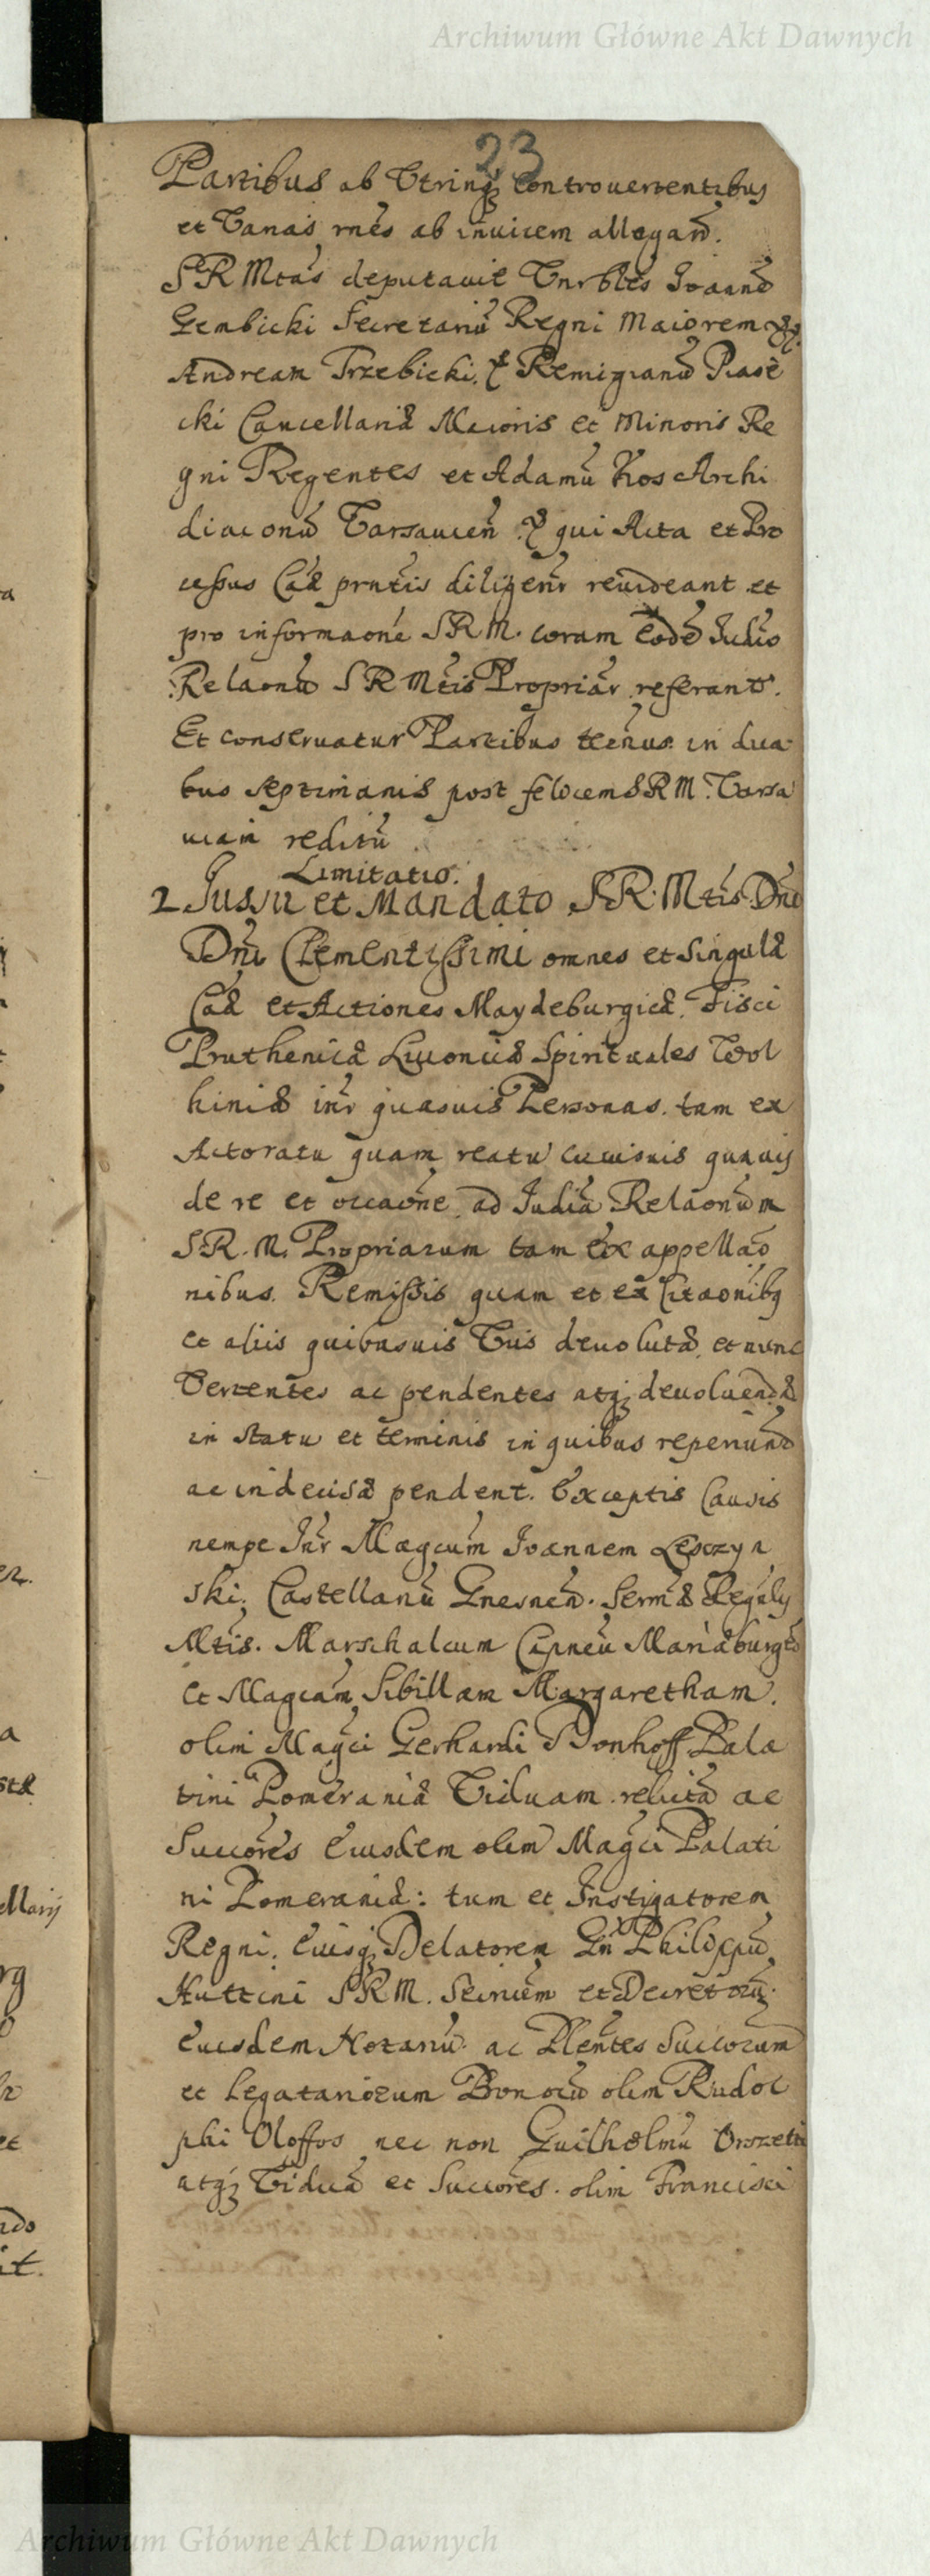 Archiwum Główne Akt Dawnych
23
Partibus ab Vtrinq3 controuertentibus
et Varias rnes ab inuicem allegan.
SRMtas deputauit Vnrbles Joannē
Gembicki Secretariū Regni Maiorem
Andream Trzebicki, et Remigianū Piase
cki Cancellariæ Maioris et Minoris Re
gni Regentes et Adamū Kos Archi
diaconū Varsauien qui Acta et Pro
cessus Cāæ prntis diligenr reuideant et
pro informaōne SRM. coram eodē Judio
Relaonū SRMtis Propriar referant.
Et conseruatur Partibus ternus in dua
bus septimanis post felicem SRM. Varsa
uiam reditū
Limitatio.
2 Jussu et Mandato SR.Mtis Dni
Dni Clementissimi omnes et Singulæ
Cāæ et Actiones Maydeburgicæ, Fisci
Pruthenicæ Liuonicæ Spirituales Wol
hiniæ inr quasuis Personas. tam ex
Actoratu quam reatu cuiusuis quauis
de re et occaōne ad Judia Relaonum
S.R.M. Propriarum tam ex appellaō
nibus. Remissis quam et ex Citaonibq
et aliis quibusuis Viis deuolutæ, et nunc
Vertentes ac pendentes atq3 deuoluendæ
in statu et terminis in quibus reperiunr
ac indecisæ pendent. Exceptis Causis
nempe Inr Magcum Joannem Leszczyn
ski, Castellanū Gnesnen. Sermæ Regnlis
Mtis. Marschalcum Capneū Mariæburgen
et Magcam Sibillam Margaretham.
olim Magci Gerhardi Donhoff Pala
tini Pomeraniæ Viduam relictā ac
Succōres Eiusdem olim Magci Palati
ni Pomeraniæ: tum et Instigatorem
Regni. Eiusq3 Delatorem Gn Philippū
Huttini SRM. Secriūm et Decretorū
Eiusdem Notariū ac Plentes Succorum
et Legatariorum Bonorū olim Rudol
phi Oloffos nec non Guilhelmū Orszetti
atq3 Viduā et Succōres. olim Francisci
Archiwum Główne Akt Dawnych